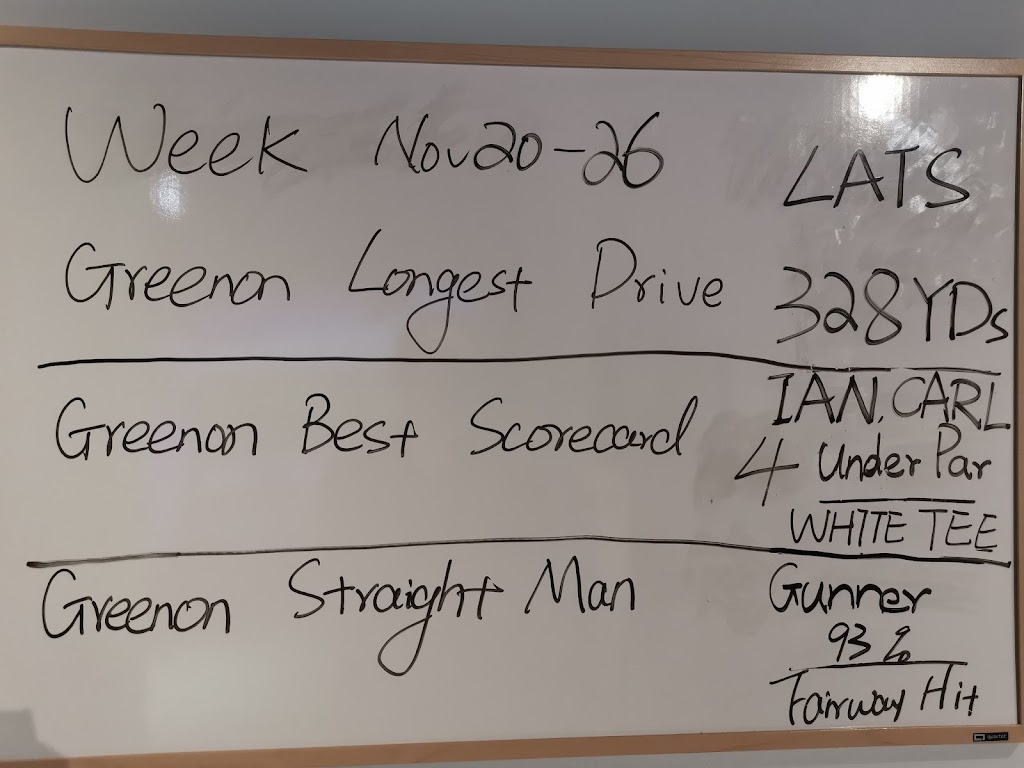 Week Nov 20-26
LATS
Greenon Longest Drive 328 YDs
Greenon Best Scorecard
IAN, CARL
4 Under Par
WHITE TEE
Greenon Straight Man
Gunner
93%
Fairway Hit